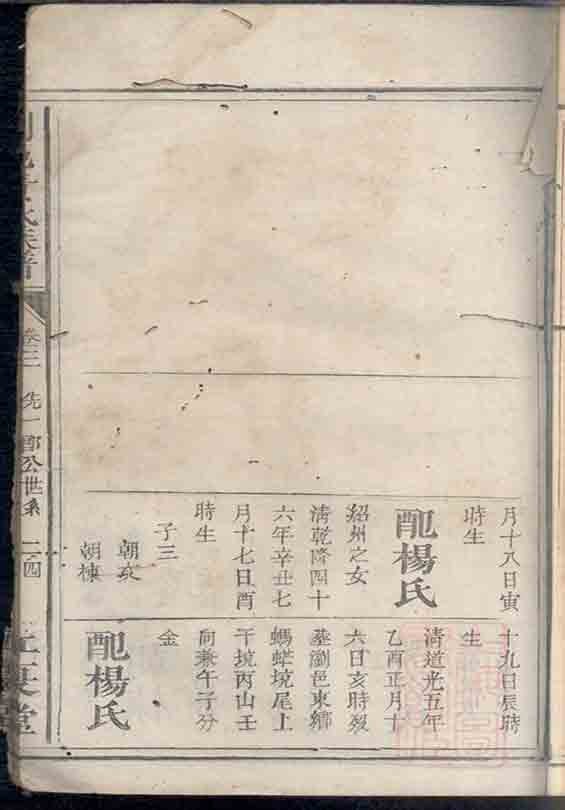 月十八日寅
時生
配楊氏
紹州之女
清乾隆四十
六年辛丑七
月十七日酉
時生
子三
朝亥
朝棟
十九日辰時
生
清道光五年
乙酉正月十
六日亥時歿
墓瀏邑東鄉
螞蟥境尾上
干境丙山壬
向兼午子分
金
配楊氏
氏族譜
卷三
先一郎公世系